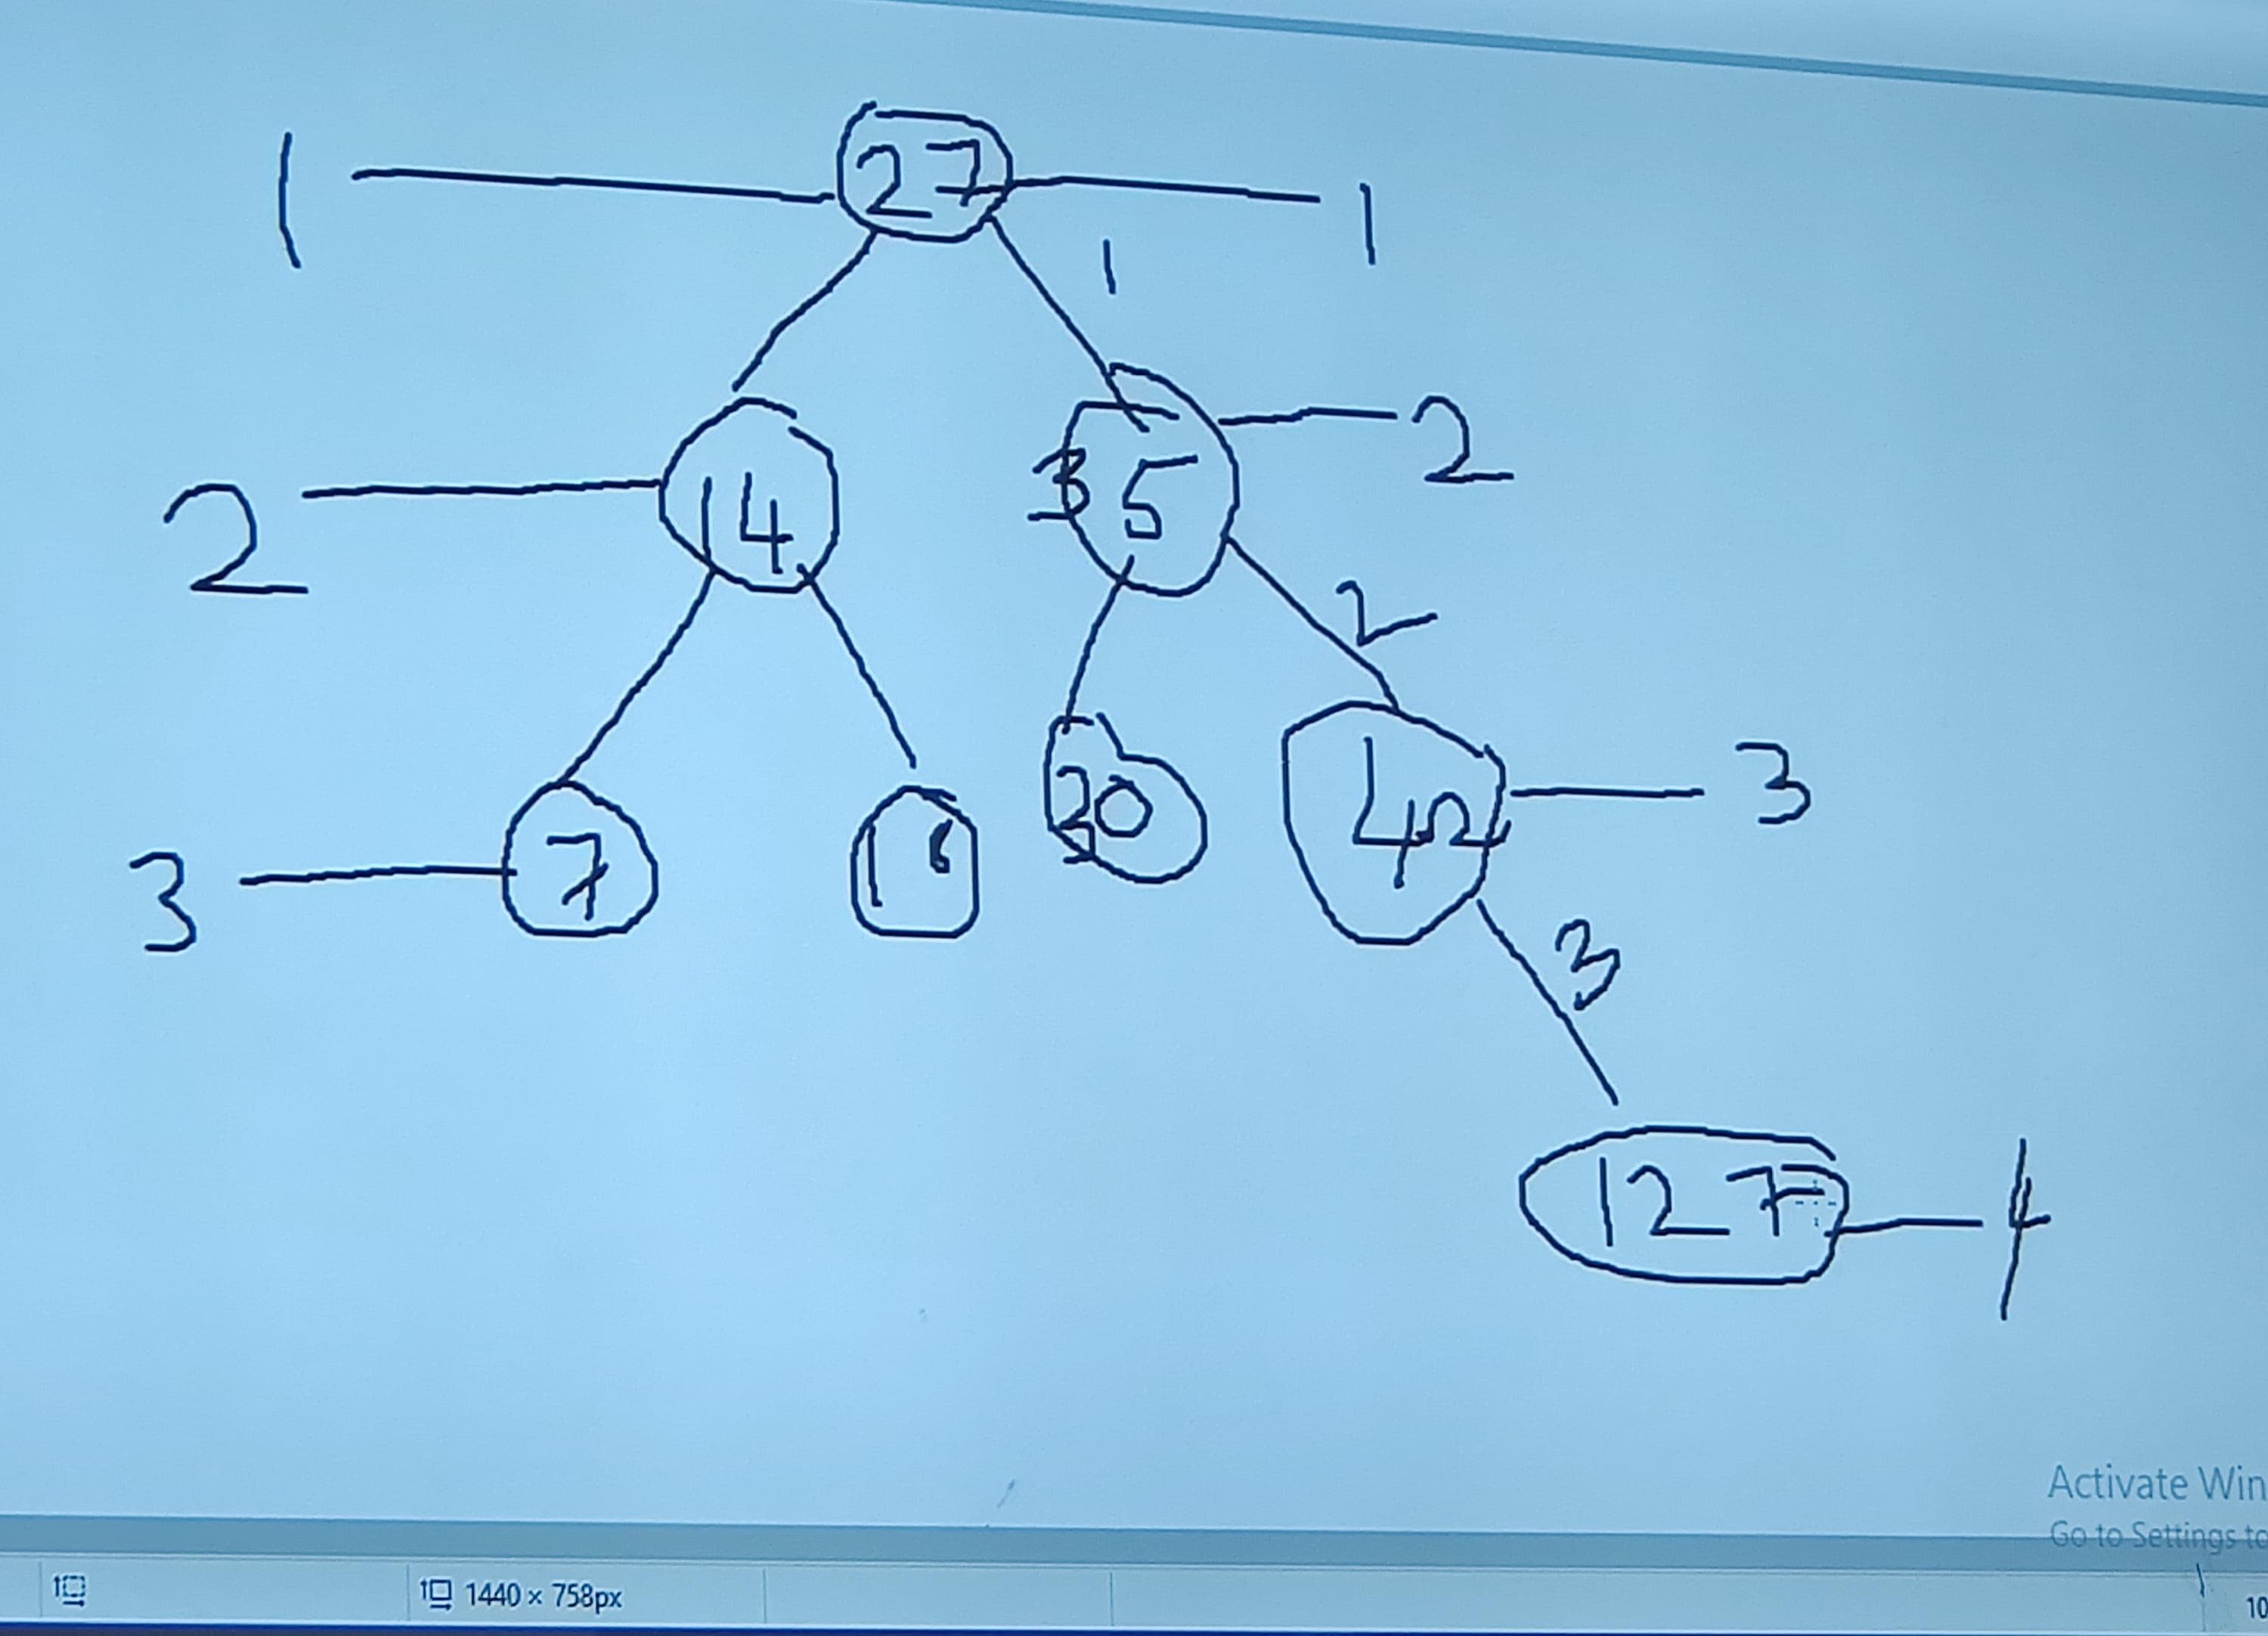 1 27 1
1
2 14 35 2
2
3 7 30 42 3
3
127 4
Activate Win
Go to Settings to
1440 × 758px
10